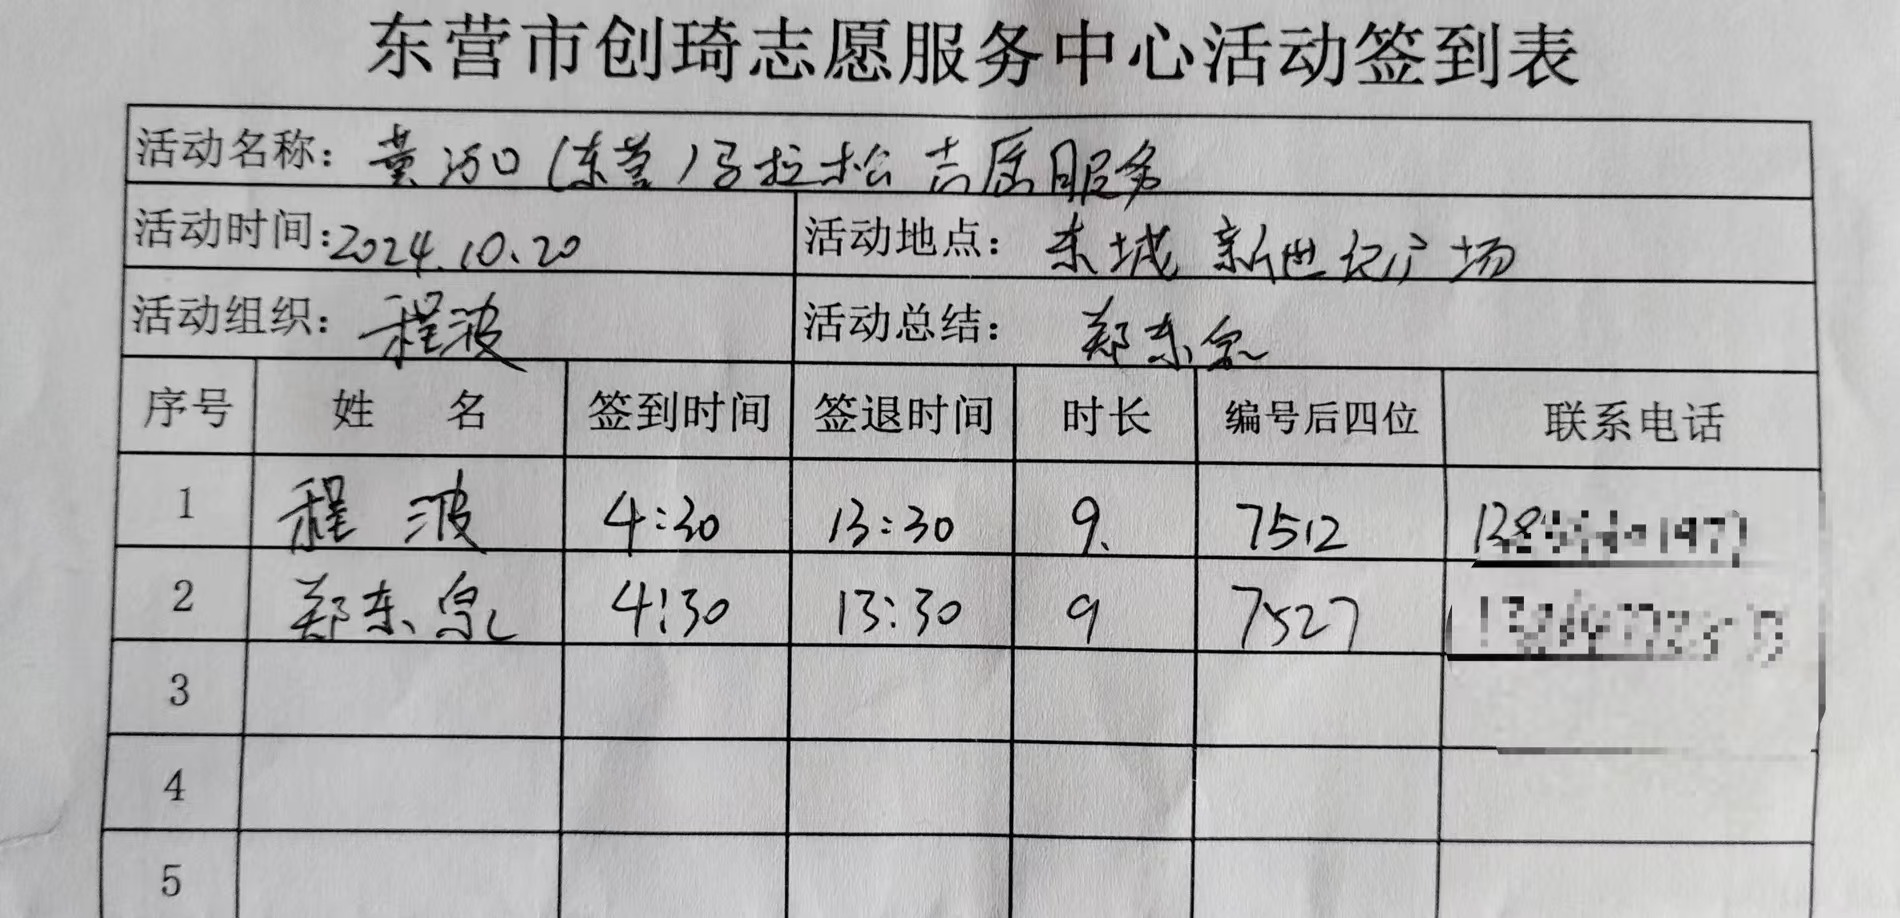 东营市创琦志愿服务中心活动签到表
活动名称：黄河口（东营）马拉松志愿服务
活动时间：2024.10.20 活动地点：东城新世纪广场
活动组织：程波 活动总结：郑东泉
序号 姓名 签到时间 签退时间 时长 编号后四位 联系电话
1 程波 4:30 13:30 9. 7512
2 郑东泉 4:30 13:30 9 7527
3
4
5